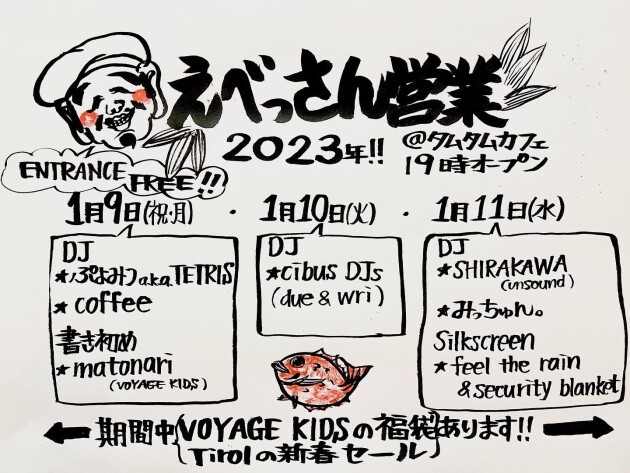 えべっさん営業
2023年!! @タムタムカフェ
19時オープン
ENTRANCE
FREE!!
1月9日(祝・月)・1月10日(火)・1月11日(水)
DJ
★ぷよみつ a.k.a TETRIS
★coffee
書き初め
★matonari
(VOYAGE KIDS)
DJ
★cibus DJs
(due & wri)
DJ
★SHIRAKAWA
(unsound)
★みっちゅん。
Silkscreen
★feel the rain
& security blanket
期間中 VOYAGE KIDSの福袋 あります!!
Tirolの新春セール